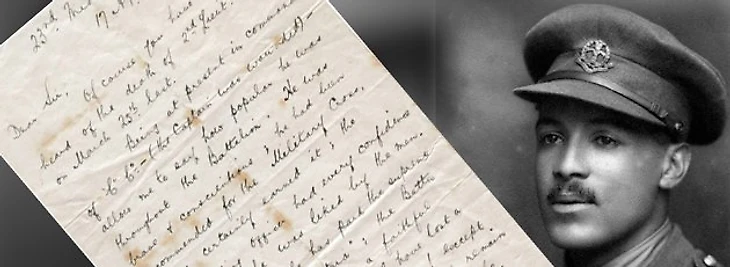 23rd. Mx
17 Apl.
Dear Sir,
Of course you have
heard of the death of 2nd Lieut.
on March 25th last.
Being at present in command
of "C" Co - (the Captain was wounded) -
allow me to say how popular he was
throughout the Battalion. He was
brave & conscientious; he had been
recommended for the Military Cross,
certainly earned it; the
officer had every confidence
was liked by the men.
has paid the supreme
; the Battn
a faithful
have lost a
except
remain